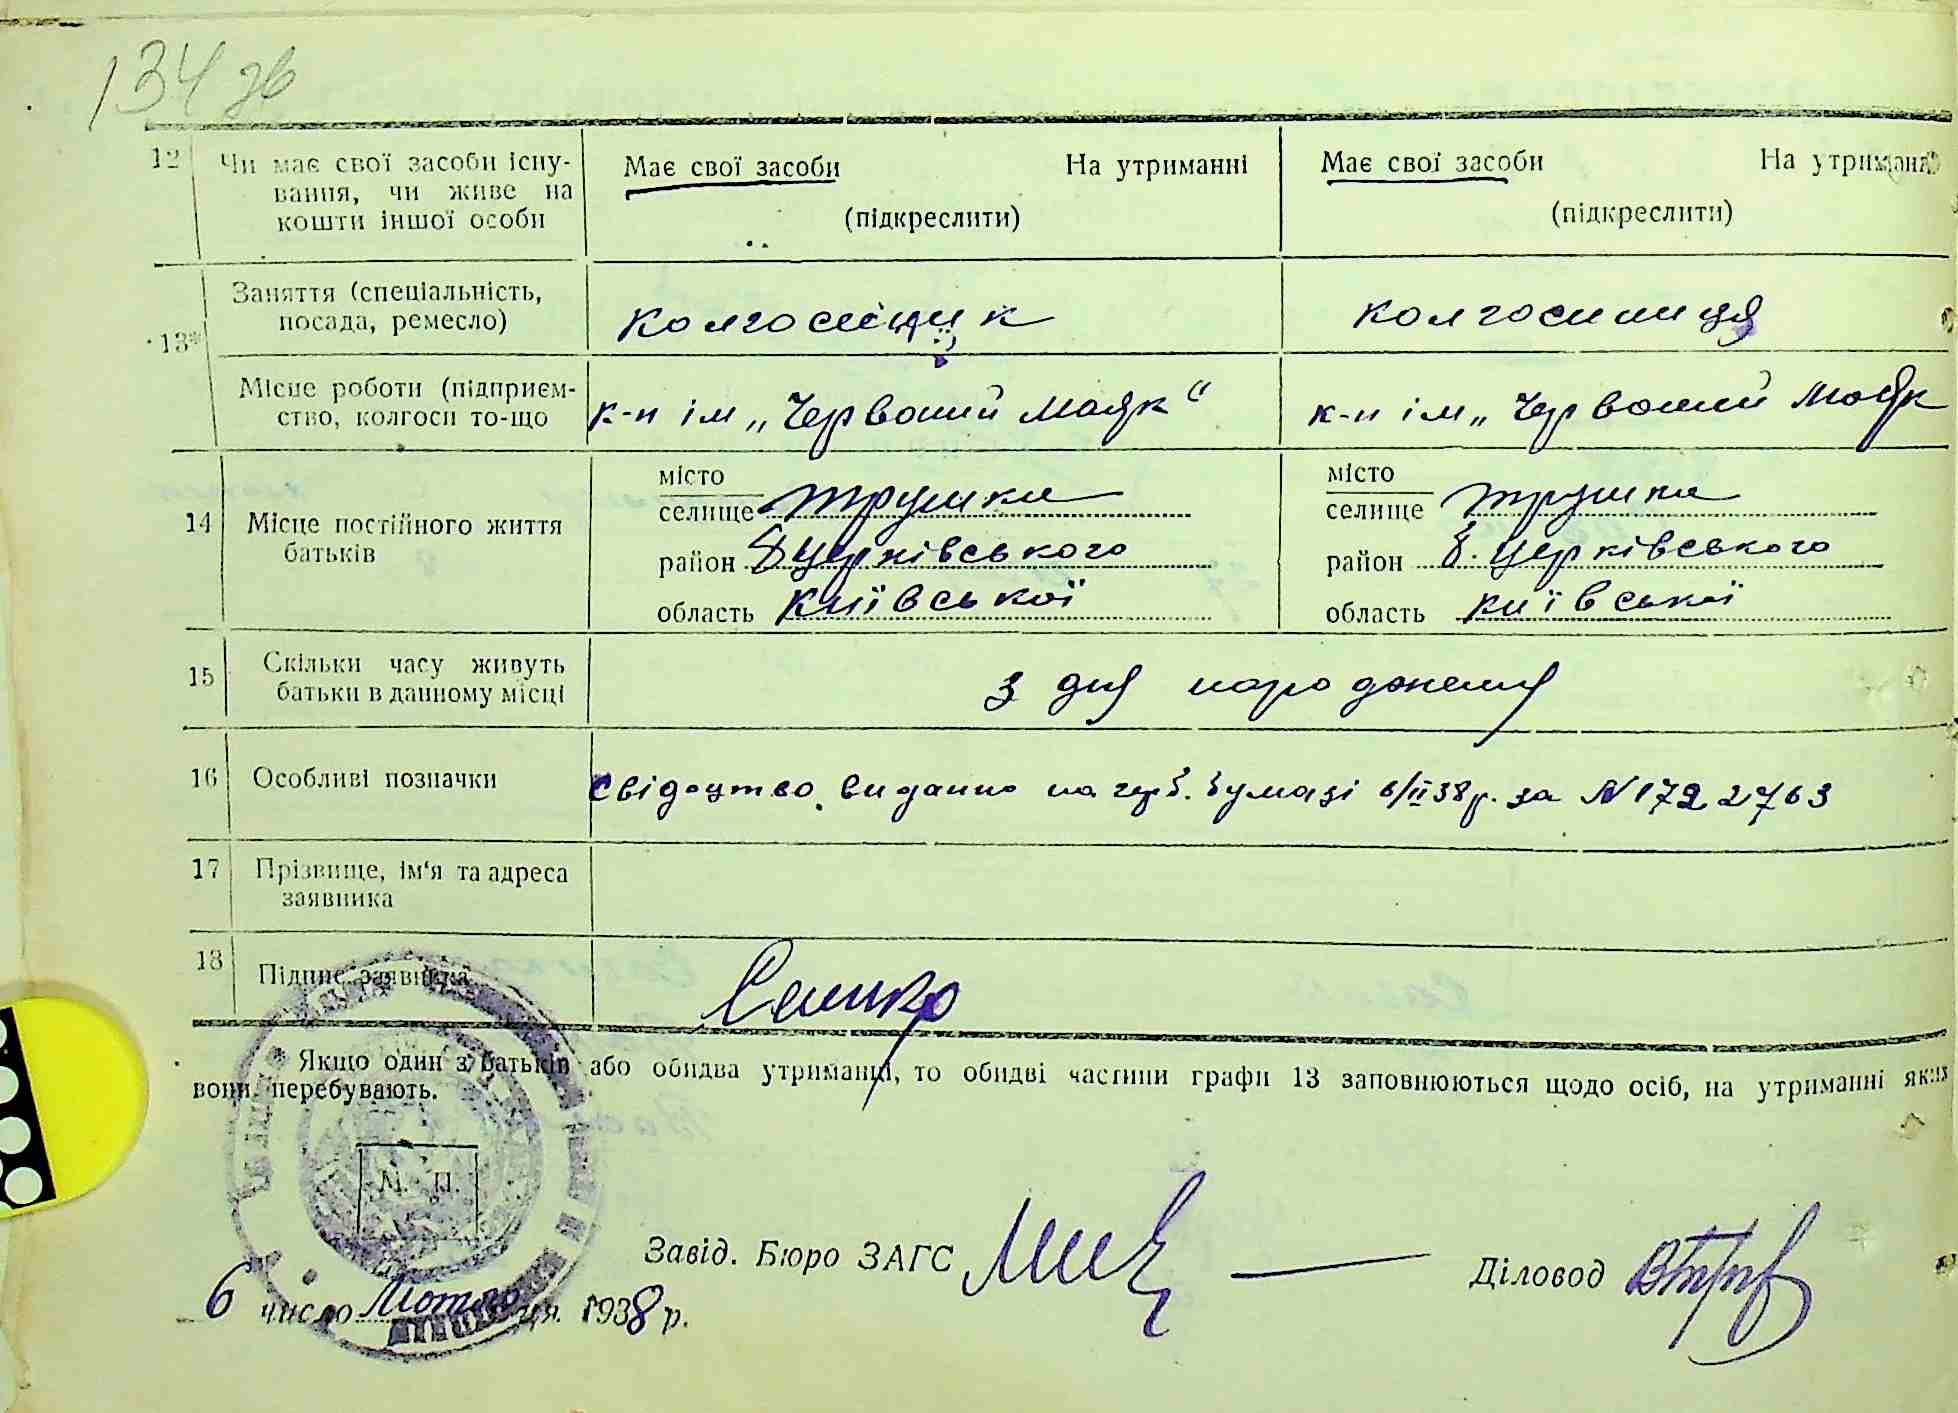 134 зв
12 Чи має свої засоби існу- Має свої засоби На утриманні Має свої засоби На утриманні
вання, чи живе на
кошти іншої особи (підкреслити) (підкреслити)
Заняття (спеціальність, колгоспник колгоспниця
посада, ремесло)
13*
Місце роботи (підприєм- к-п ім „Червоний Маяк“ к-п ім „Червоний Маяк
ство, колгосп то-що
14 Місце постійного життя батьків
місто місто
селище Трушки селище Трушки
район Б Церківського район Б. Церківського
область Київської область Київської
15 Скільки часу живуть з дня народження
батьки в данному місці
16 Особливі позначки Свідоцтво видано на герб. бумазі 6/II 38р. за N 1722763
17 Прізвище, ім‘я та адреса
заявника
18 Підпис заявника
Якщо один з батьків або обидва утриманці, то обидві частини графи 13 заповнюються щодо осіб, на утриманні яких
вони перебувають.
М. П.
Завід. Бюро ЗАГС Діловод
6 число Лютого ця 1938 р.